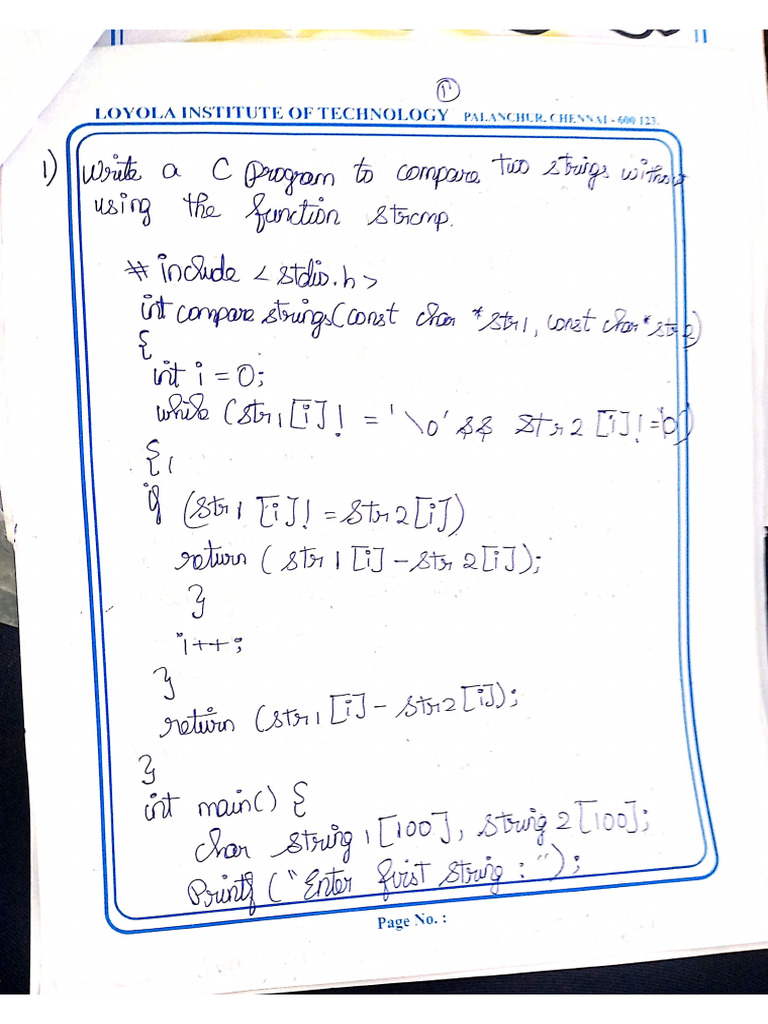 LOYOLA INSTITUTE OF TECHNOLOGY PALANCHUR, CHENNAI - 600 123.
1) Write a C program to compare two strings without
using the function strcmp.
# include < stdio.h>
int compare strings(const char *str1, const char* str2)
{
int i = 0;
while (str1[i]! = '\0' && str2 [i]!=
{
if (str1 [i]! = str2[i])
return (str1[i] - str2[i]);
}
i++;
}
return (str1[i] - str2[i]);
}
int main() {
char string1[100], string2[100];
Printf ("Enter first string : ");
Page No. :